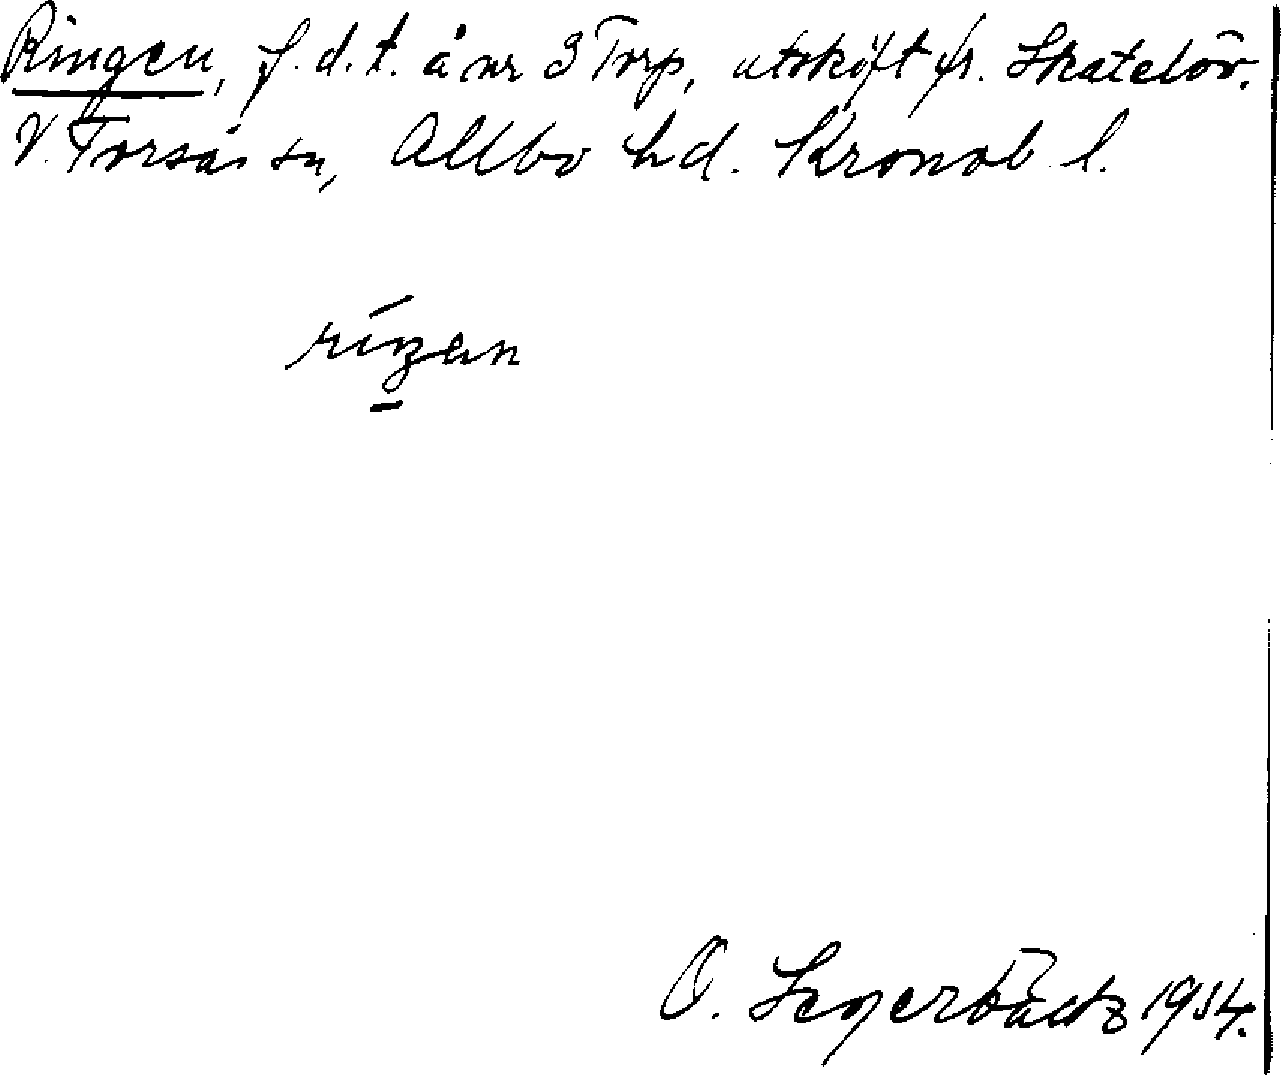 Ringen, f.d.t. å nr 3 Torp, utskift fr. Skatelöv.
V. Torsås sn, Allbo hd. Kronob. l.
rínzan
O. Segerbäck 1954.